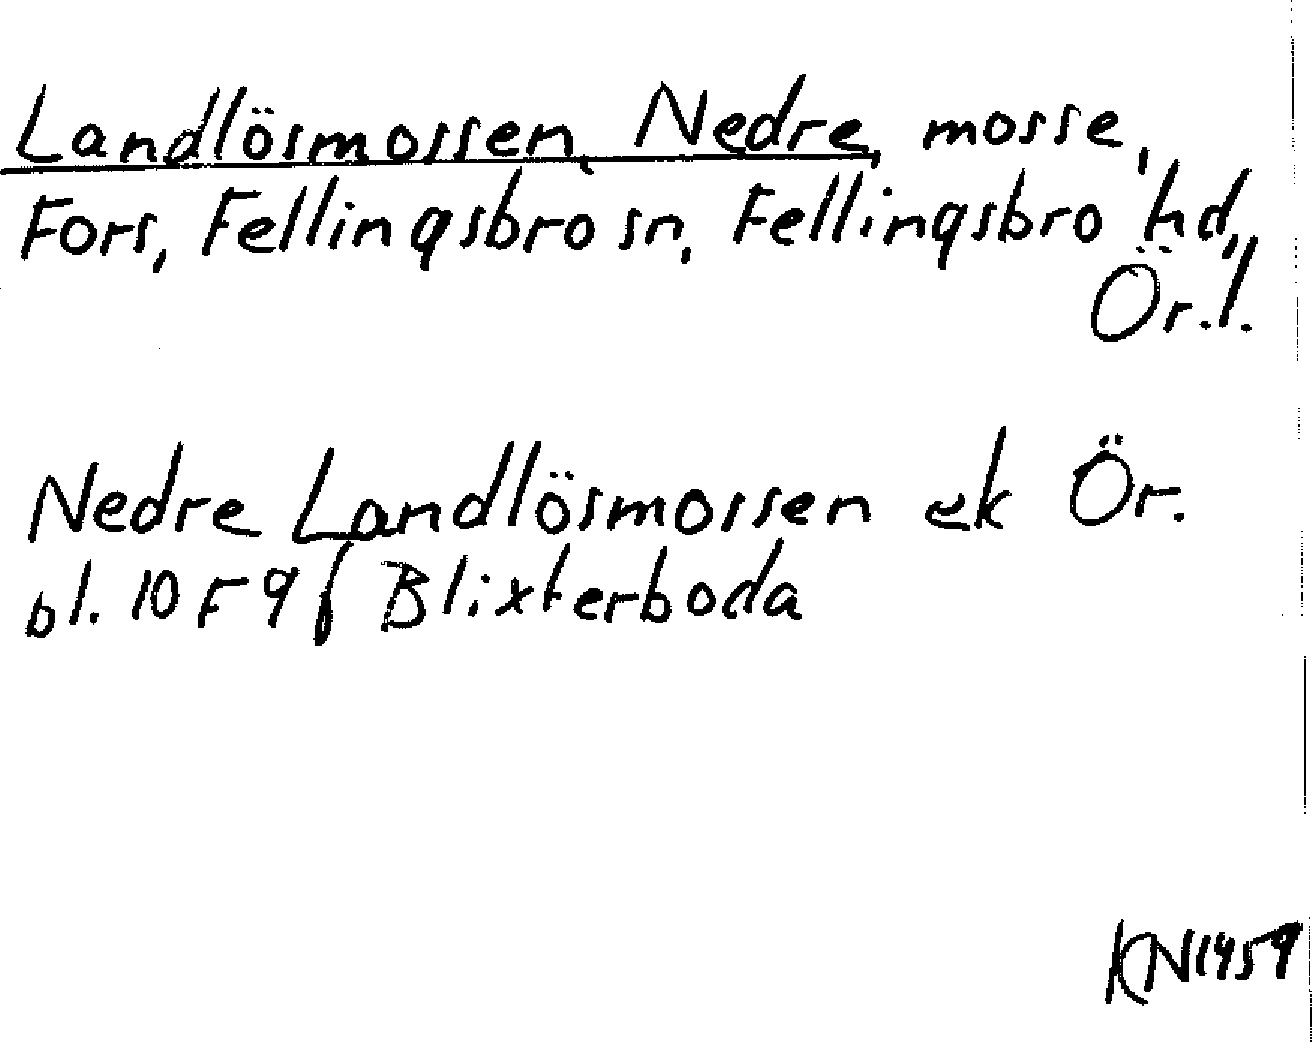 Landlösmossen, Nedre, mosse,
Fors, Fellingsbro sn, Fellingsbro hd,
Ör.l.
Nedre Landlösmossen ek Ör.
bl. 10F 9f Blixterboda
KN1959